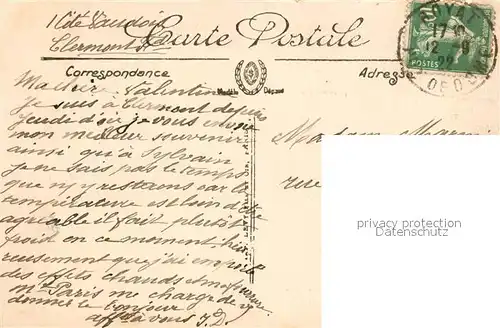 1 Cité Vaudoit
Clermont Fd
Carte Postale
Correspondance
Adresse
Modèle Déposé
ROYAT
17
12 - 9
22
POSTES
DE DOME
Ma chère Valentine
je suis à Clermont depuis
Jeudi d'où je vous envoie
mon meilleur souvenir
ainsi qu'à Sylvain
je ne sais pas le temps
que n/y restons car la
température est loin d'être
agréable il fait plutôt
froid en ce moment heu
reusement que j'ai emporté
des effets chauds et ma fourrure
Me Paris me charge de v/
donner le bonjour
affte à vous J.D.
Madame
rue
privacy protection
Datenschutz